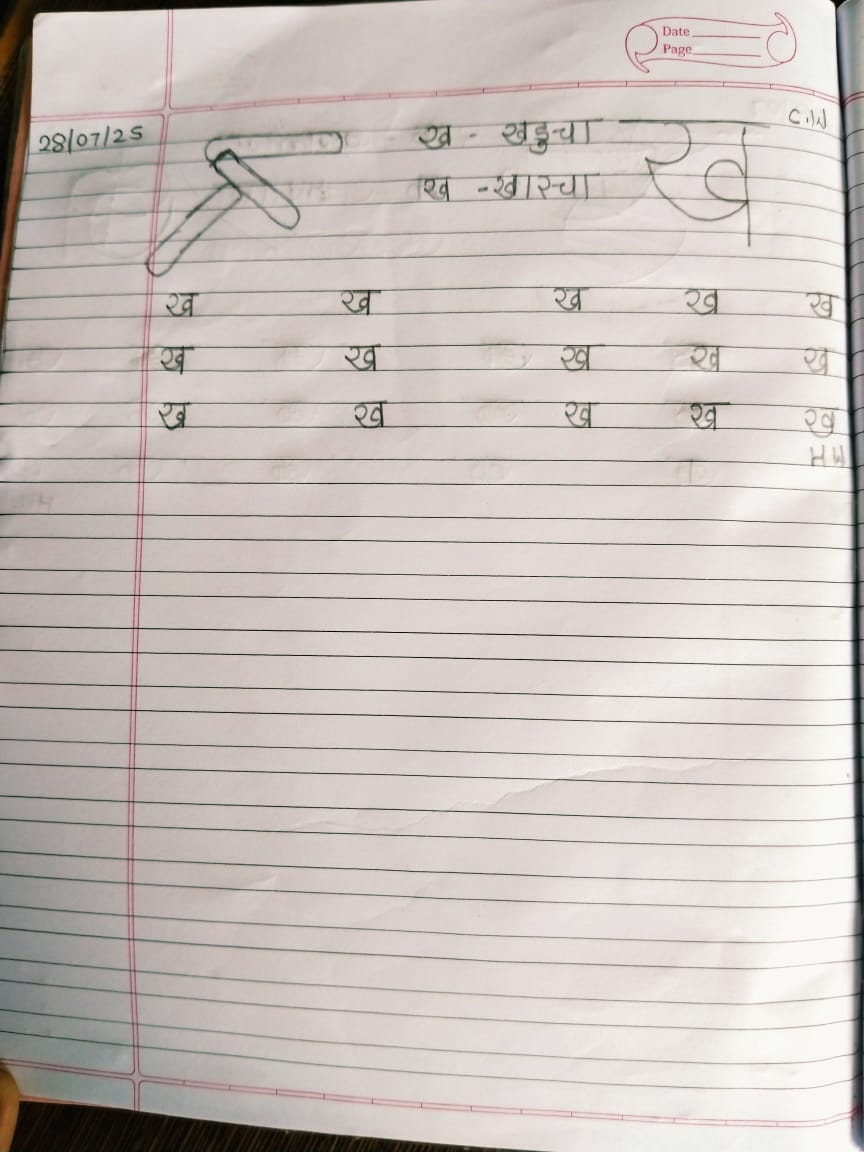 Date
Page
C.W
28/07/25
ख - खडुचा
ख - खारचा
ख
ख ख ख ख ख
ख ख ख ख ख
ख ख ख ख ख
HW